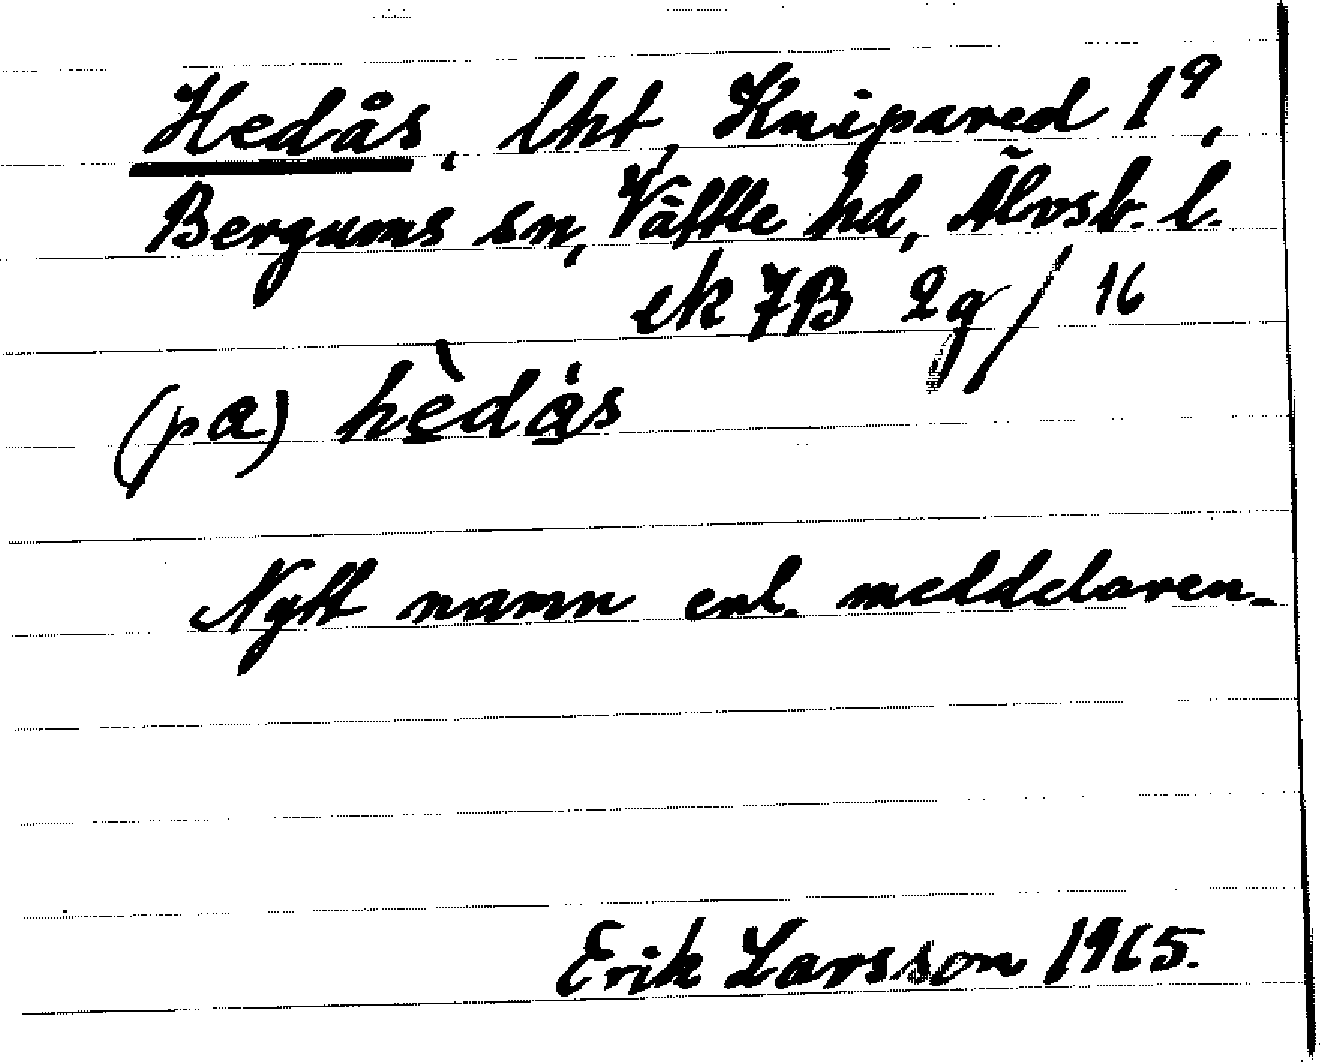 Hedås, lht, Knipared 1⁹,
Bergums sn, Vättle hd, Älvsb. l.
ek 7B 2g/16
(pa) hèdås
Nytt namn enl. meddelaren.
Erik Larsson 1965.